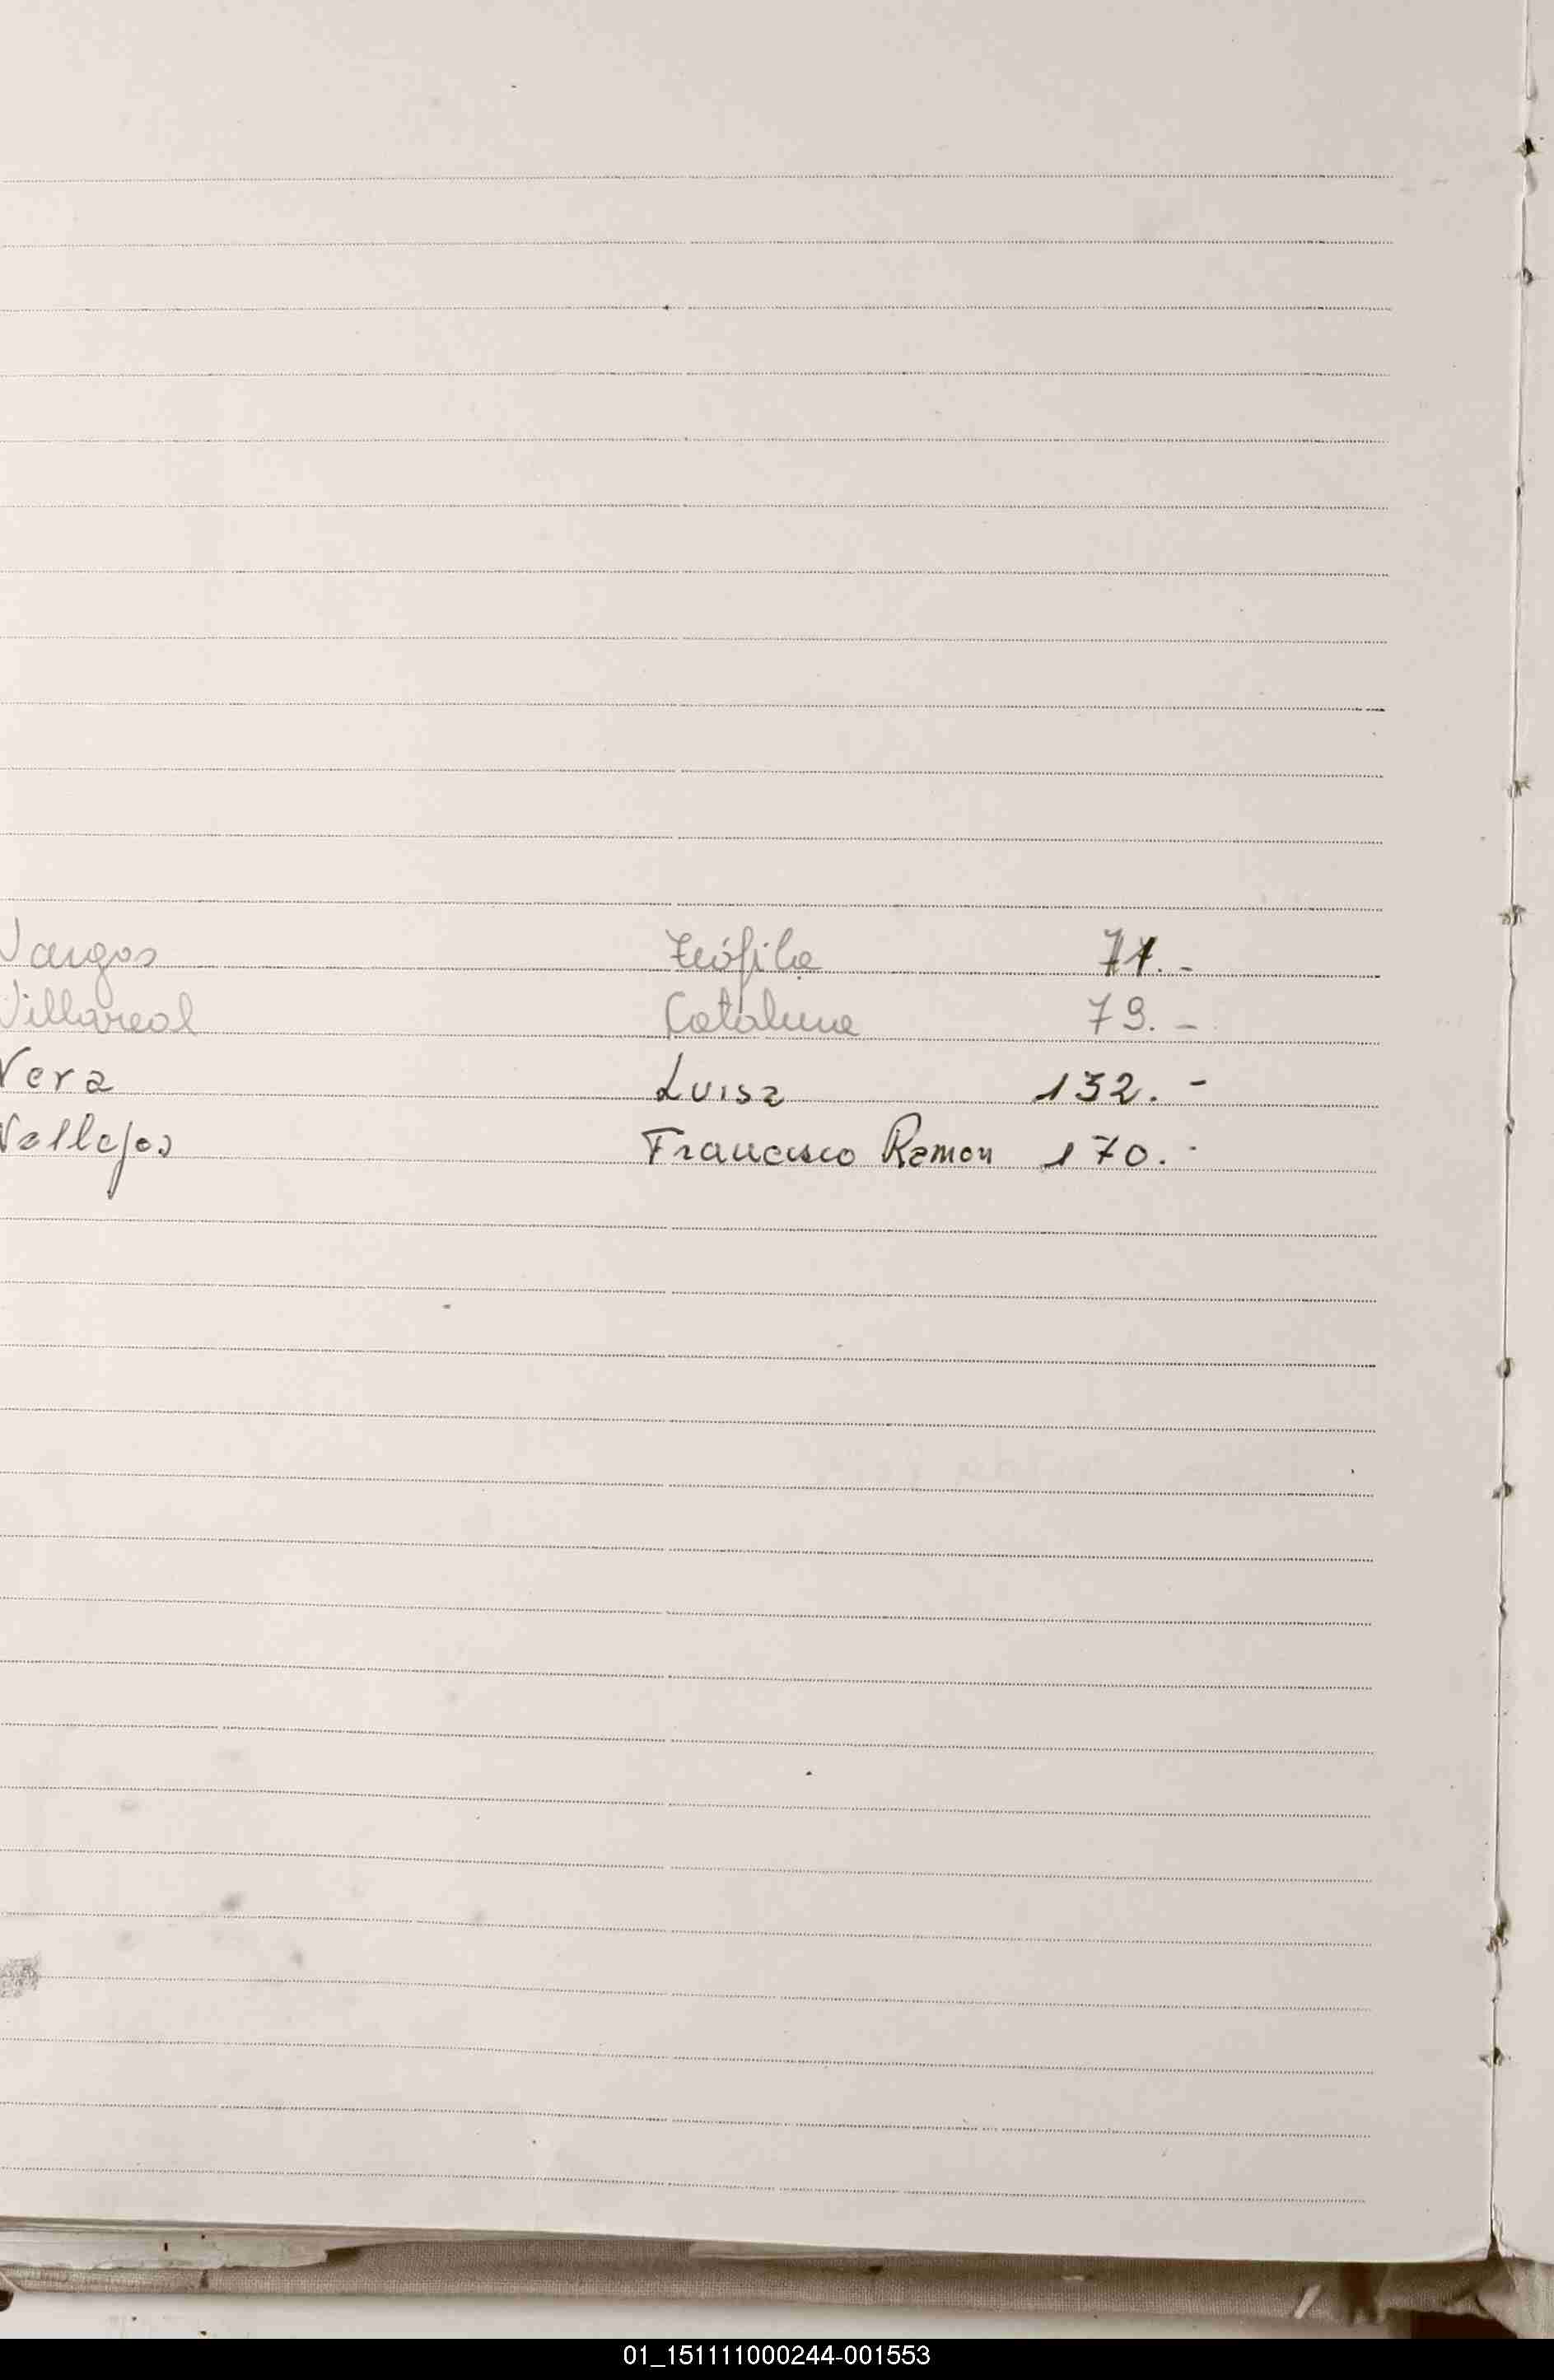 Vargas Teófila 71.-
Villareal Catalina 79.-
Vera Luisa 132.-
Vallejos Francisco Ramon 170.-
01_151111000244-001553